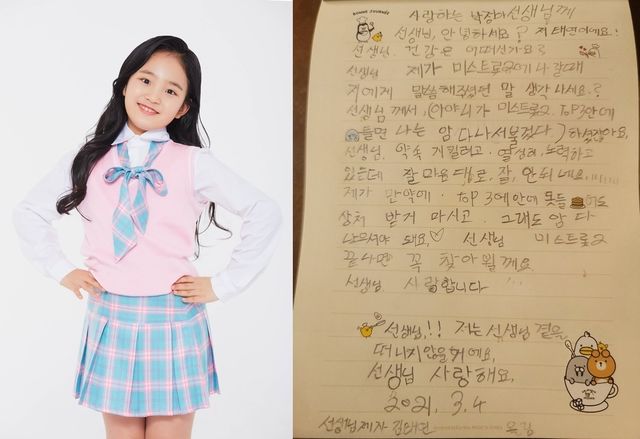 BONNE JOURNÉE
사랑하는 박정아 선생님께
선생님, 안녕하세요? 저 태연이에요!
선생님. 건강은 어떠신가요?
선생님 제가 미스트롯2에 나갈때
저에게 말씀해주셨던 말 생각나세요?
선생님께서, (아야 니가 미스트롯2. Top3안에
들면 나는 암 다 나서불겄다) 하셨잖아요,
선생님, 약속 지킬려고 열심히, 노력하고
있는데 잘 마음대로, 잘, 안되네요,
제가 만약에 top 3에 안에 못들 어도
상처 받거 마시고 그래도 암 다
나으셔야 돼요, 선생님 미스트롯2
끝나면 꼭 찾아뵐께요
선생님 사랑합니다
선생님!! 저는 선생님 곁을,
떠나지 않을거에요,
선생님 사랑해요,
2021. 3. 4
선생님제자 김태연 올림